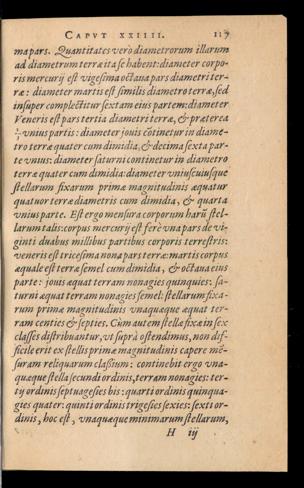 CAPVT XXIIII. 117
ma pars. Quantitates verò diametrorum illarum
ad diametrum terræ ita se habent: diameter corpo-
ris mercurij est vigesima octaua pars diametri ter-
ræ: diameter martis est similis diametro terræ, sed
insuper complectitur sextam eius partem: diameter
Veneris est pars tertia diametri terræ, & præterea
vnius partis: diameter jouis cōtinetur in diame-
tro terræ quater cum dimidia, & decima sexta par-
te vnius: diameter saturni continetur in diametro
terræ quater cum dimidia: diameter vniuscuiusque
stellarum fixarum primæ magnitudinis æquatur
quatuor terræ diametris cum dimidia, & quarta
vnius parte. Est ergo mensura corporum harū stel-
larum talis: corpus mercurij est ferè vna pars de vi-
ginti duabus millibus partibus corporis terrestris:
veneris est tricesima nona pars terræ: martis corpus
æquale est terræ semel cum dimidia, & octaua eius
parte: jouis æquat terram nonagies quinquies: sa-
turni æquat terram nonagies semel: stellarum fixa-
rum primæ magnitudinis vnaquæque æquat ter-
ram centies & septies. Cùm autem stellæ fixæ in sex
classes distribuantur, vt suprà ostendimus, non dif-
ficile erit ex stellis primæ magnitudinis capere mē-
suram reliquarum classium: continebit ergo vna-
quæque stella secundi ordinis, terram nonagies: ter-
tij ordinis septuagesies bis: quarti ordinis quinqua-
gies quater: quinti ordinis trigesies sexies: sexti or-
dinis, hoc est, vnaquæque minimarum stellarum,
H iij